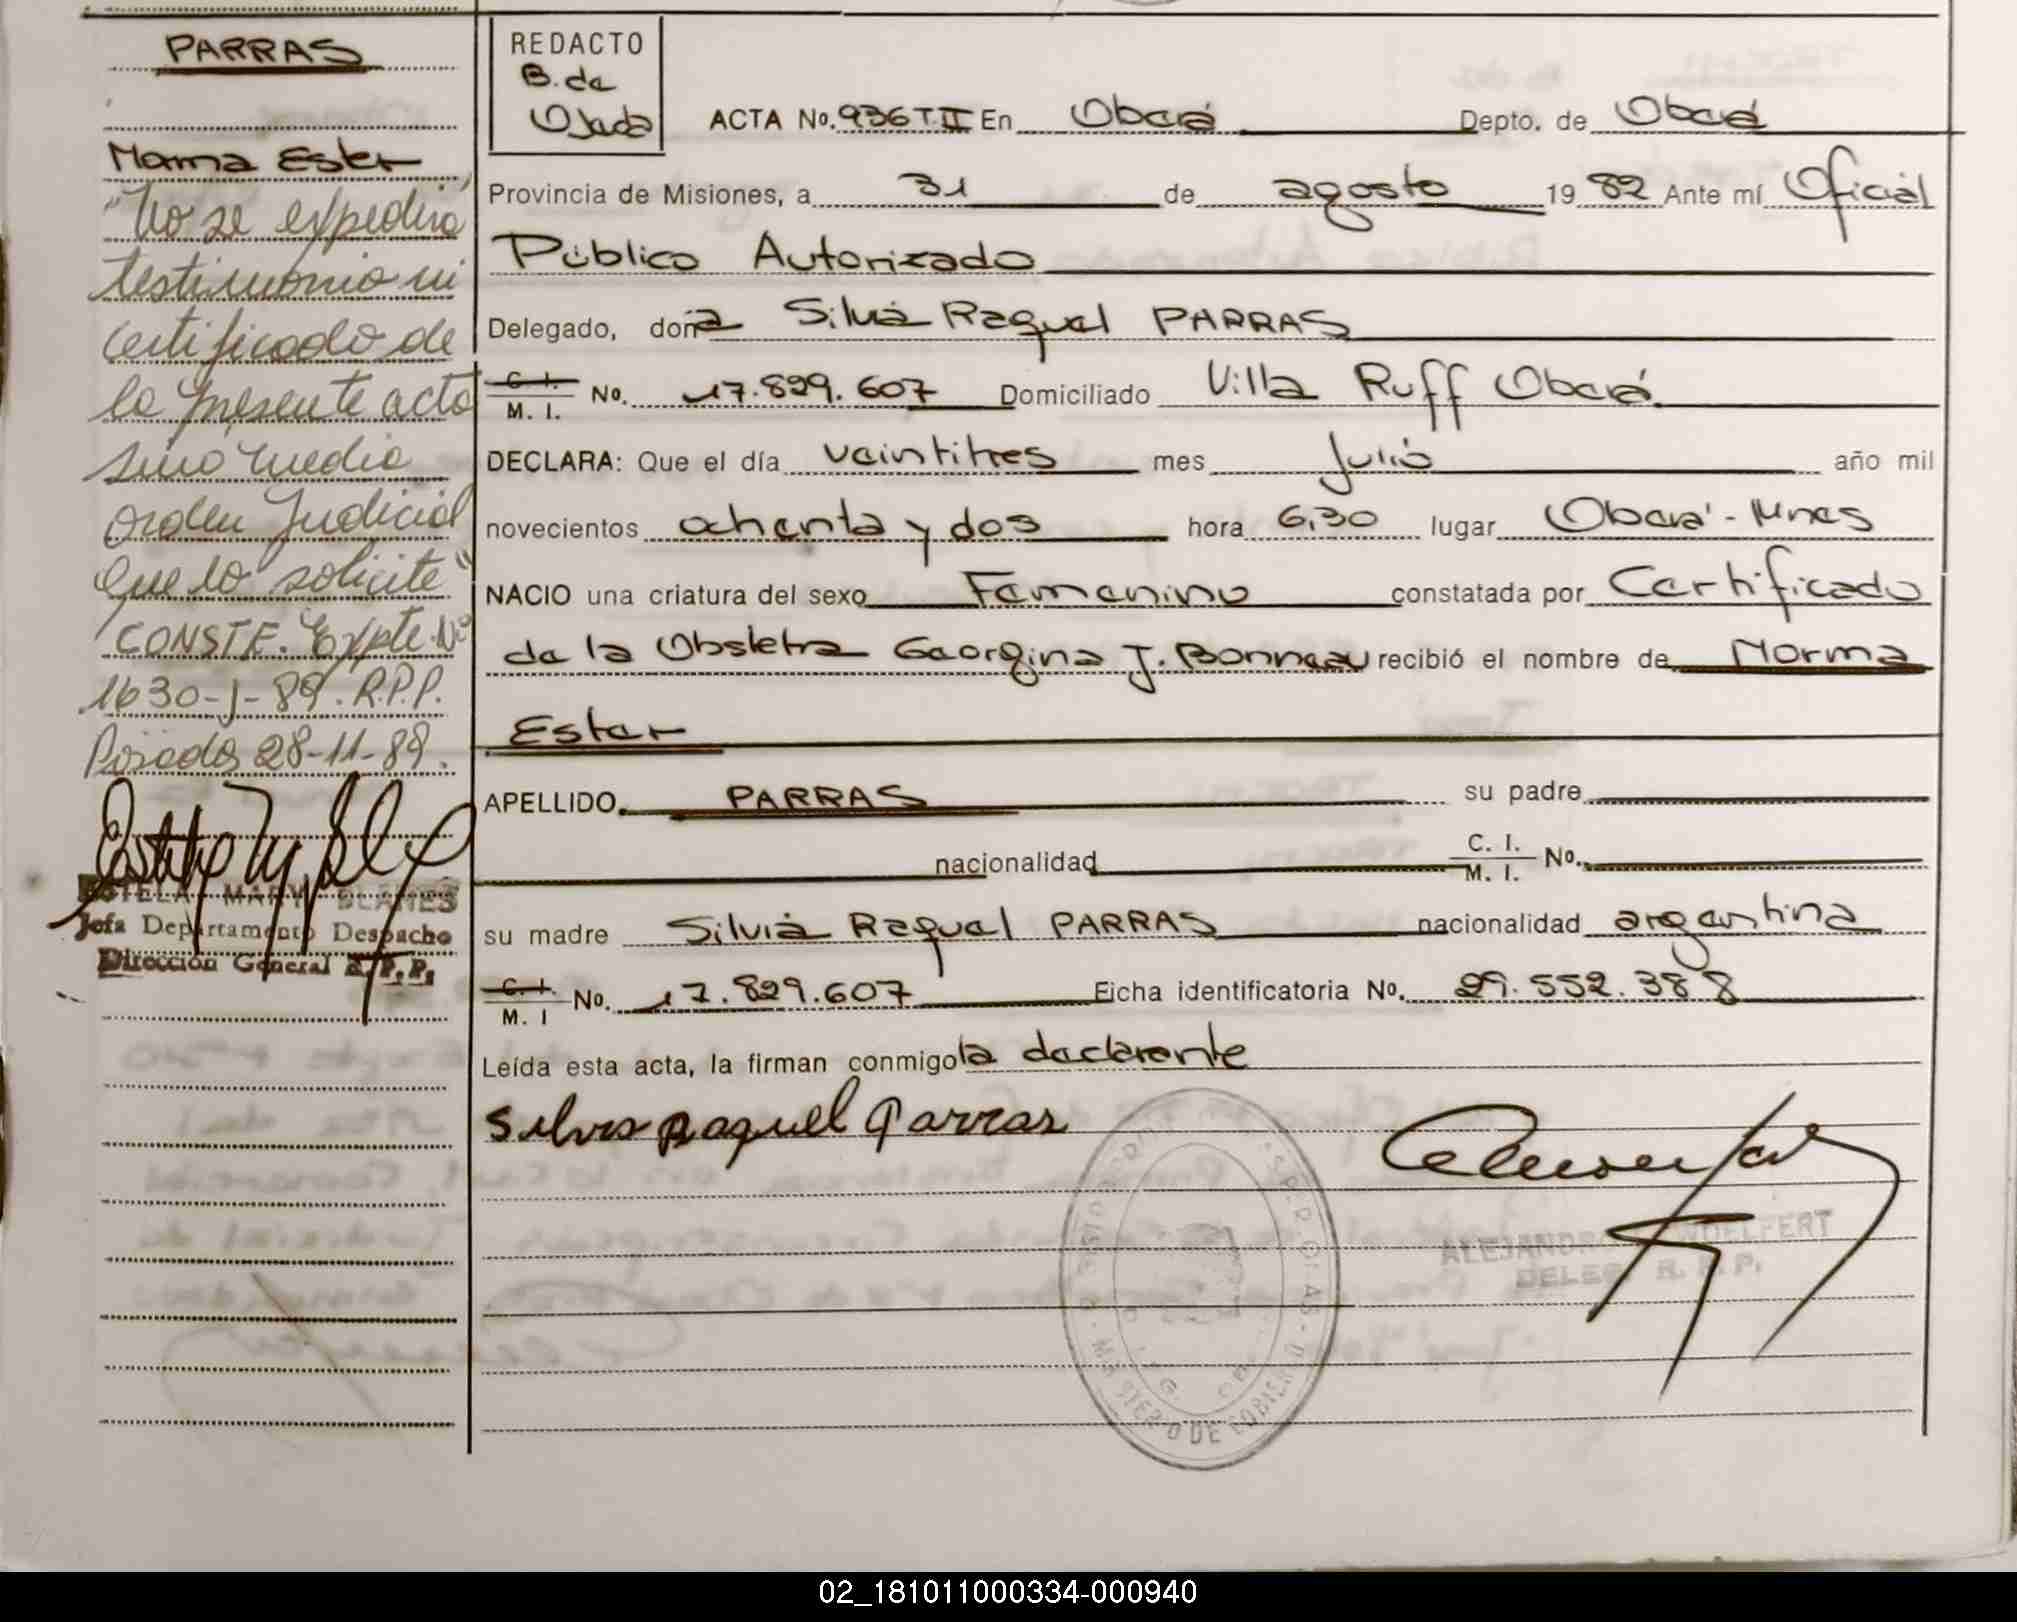 PARRAS
Norma Ester
"No se expedirá
testimonio ni
certificado de
la presente acta
sino media
Orden Judicial
que lo solicite"
CONSTE. Expte. Nº
1630-J-89. R.P.P.
Posadas 28-11-89.
ESTELA MARY BLANES
Jefa Departamento Despacho
Dirección General R.P.P.
REDACTO
B. de
Ojeda
ACTA No. 936 T.II En Oberá Depto. de Oberá
Provincia de Misiones, a 31 de agosto 1982 Ante mí Oficial
Público Autorizado
Delegado, doña Silvia Raquel PARRAS
C. I.
M. I. No. 17.829.607 Domiciliado Villa Ruff Oberá
DECLARA: Que el día veintitres mes Julio año mil
novecientos ochenta y dos hora 6,30 lugar Oberá - Mnes
NACIO una criatura del sexo Femenino constatada por Certificado
de la Obstetra Georgina J. Bonneau recibió el nombre de Norma
Ester
APELLIDO PARRAS su padre
nacionalidad C. I.
M. I. No.
su madre Silvia Raquel PARRAS nacionalidad argentina
C. I.
M. I No. 17.829.607 Ficha identificatoria No. 29.552.388
Leída esta acta, la firman conmigo la declarante
Silvia Raquel Parras
ALEJANDRO
DELEG. R. P. P.
MINISTERIO DE GOBIERNO
02_181011000334-000940